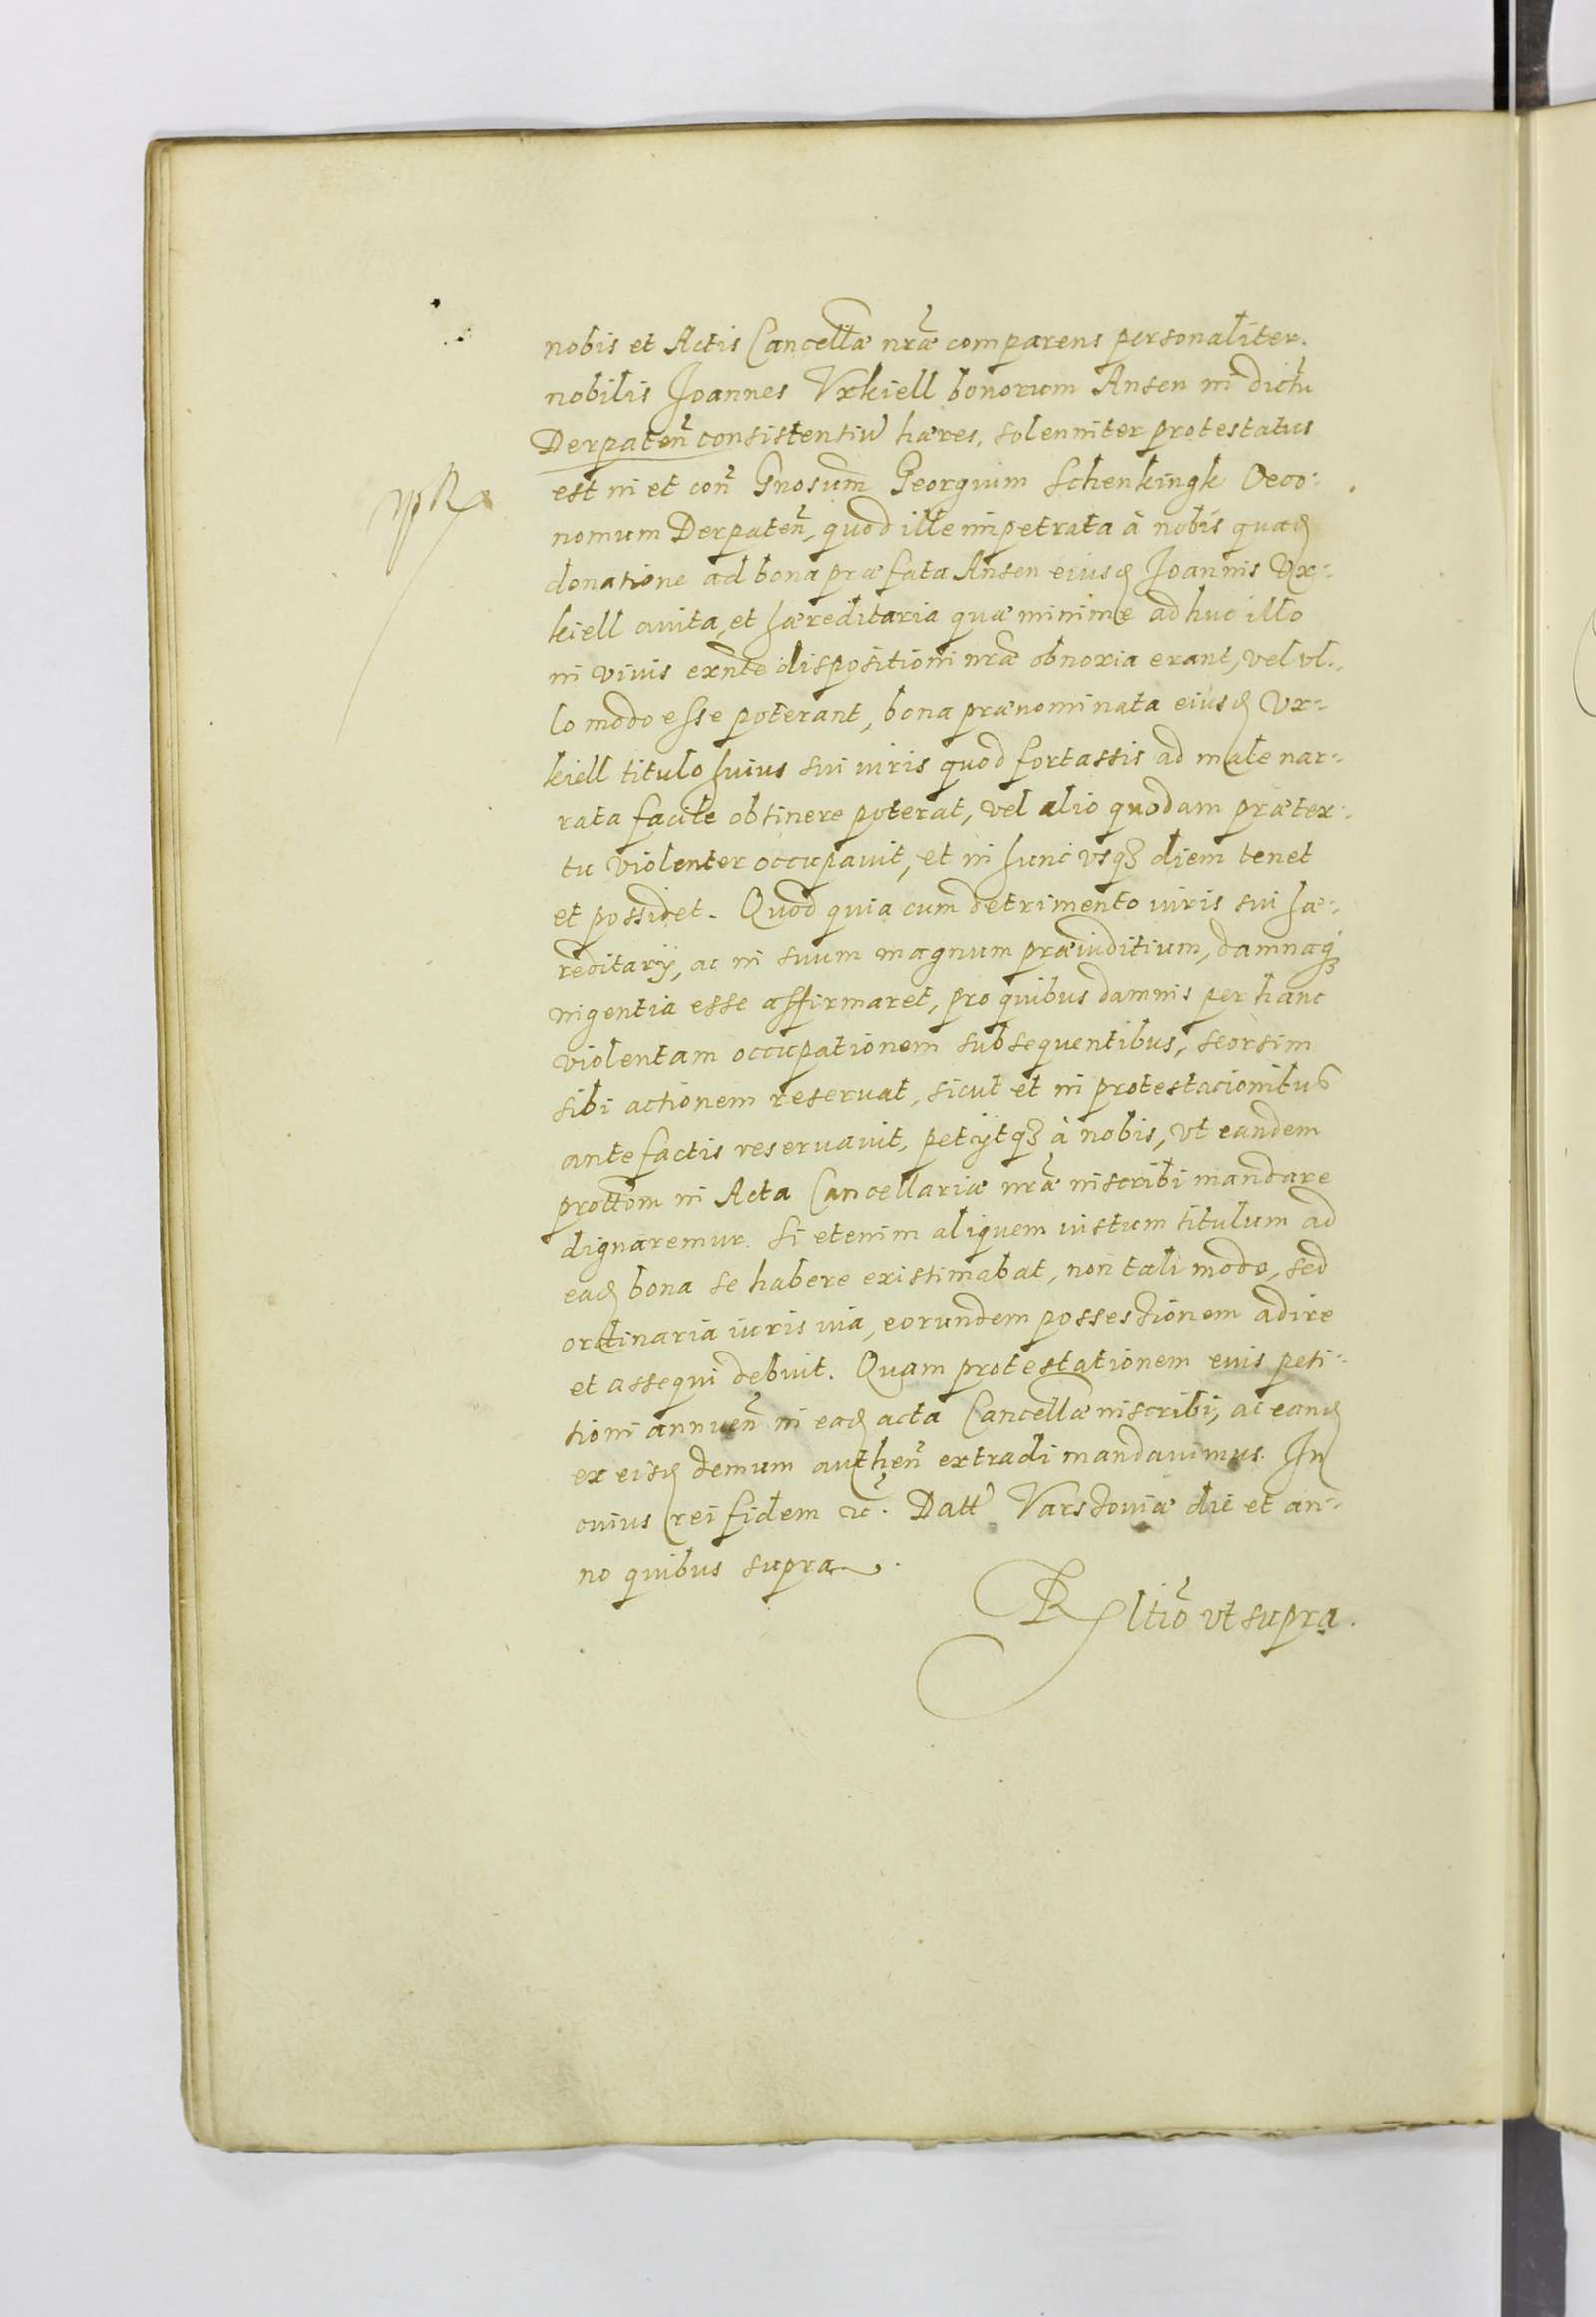 nobis et Actis Cancellæ nræ comparens personaliter.
nobilis Joannes Vxkiell bonorum Ansen in dictu
Derpateñ consistentiu hæres, solenniter protestatus
est in et coñ Gnosum Georgium Schenkingk Oeco¬
nomum Derpateñ, quod ille impetrata à nobis quad
donatione ad bona præfata Ansen eiusd Joannis Vx¬
kiell auita, et hæreditaria quæ minime adhuc illo
in viuis exnte dispositioni nræ obnoxia erant, vel vl¬
lo modo esse poterant, bona prænominata eiusd Vx¬
kiell titulo huius sui iuris quod fortassis ad male nar¬
rata facile obtinere poterat, vel alio quodam prætex¬
tu violenter occupauit, et in hunc vsq3 diem tenet
et possidet. Quod quia cum detrimento iuris sui hæ¬
reditarij, ac in suum magnum præiuditium, damnaq3
ingentia esse affirmaret, pro quibus damnis per hanc
violentam occupationem subsequentibus, seorsim
sibi actionem reseruat, sicut et in protestacionibus
antefactis reseruauit, petijtq3 à nobis, vt eandem
prottom in Acta Cancellariæ nræ inscribi mandare
dignaremur. Si etenim aliquem iustum titulum ad
ead bona se habere existimabat, non tali modo, sed
ordinaria iuris via, eorundem possessionem adire
et assequi debuit. Quam protestationem euis peti¬
tioni annueñ in ead acta Cancellæ inscribi, ac eand
ex eisd demum autheñ extradi mandauimus. In
cuius rei fidem &c. Datt Varssouiæ die et an¬
no quibus supra.
Rltio vt supra.